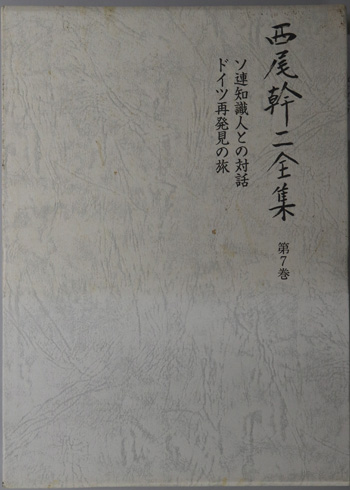 西尾幹二全集
第7巻
ソ連知識人との対話
ドイツ再発見の旅